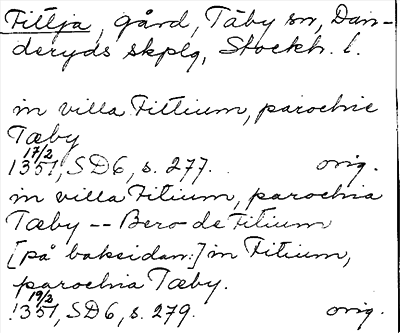 Fittja, gård, Täby sn, Dan-
deryds skplg, Stockh. l.
in villa Fittium, parochie
Tæby
17/2
1351, SD6, s. 277. orig.
in villa Fitium, parochia
Tæby -- Bero de Fitium
[på baksidan:] in Fitium,
parochia Tæby.
19/2
1351, SD6, s. 279. orig.